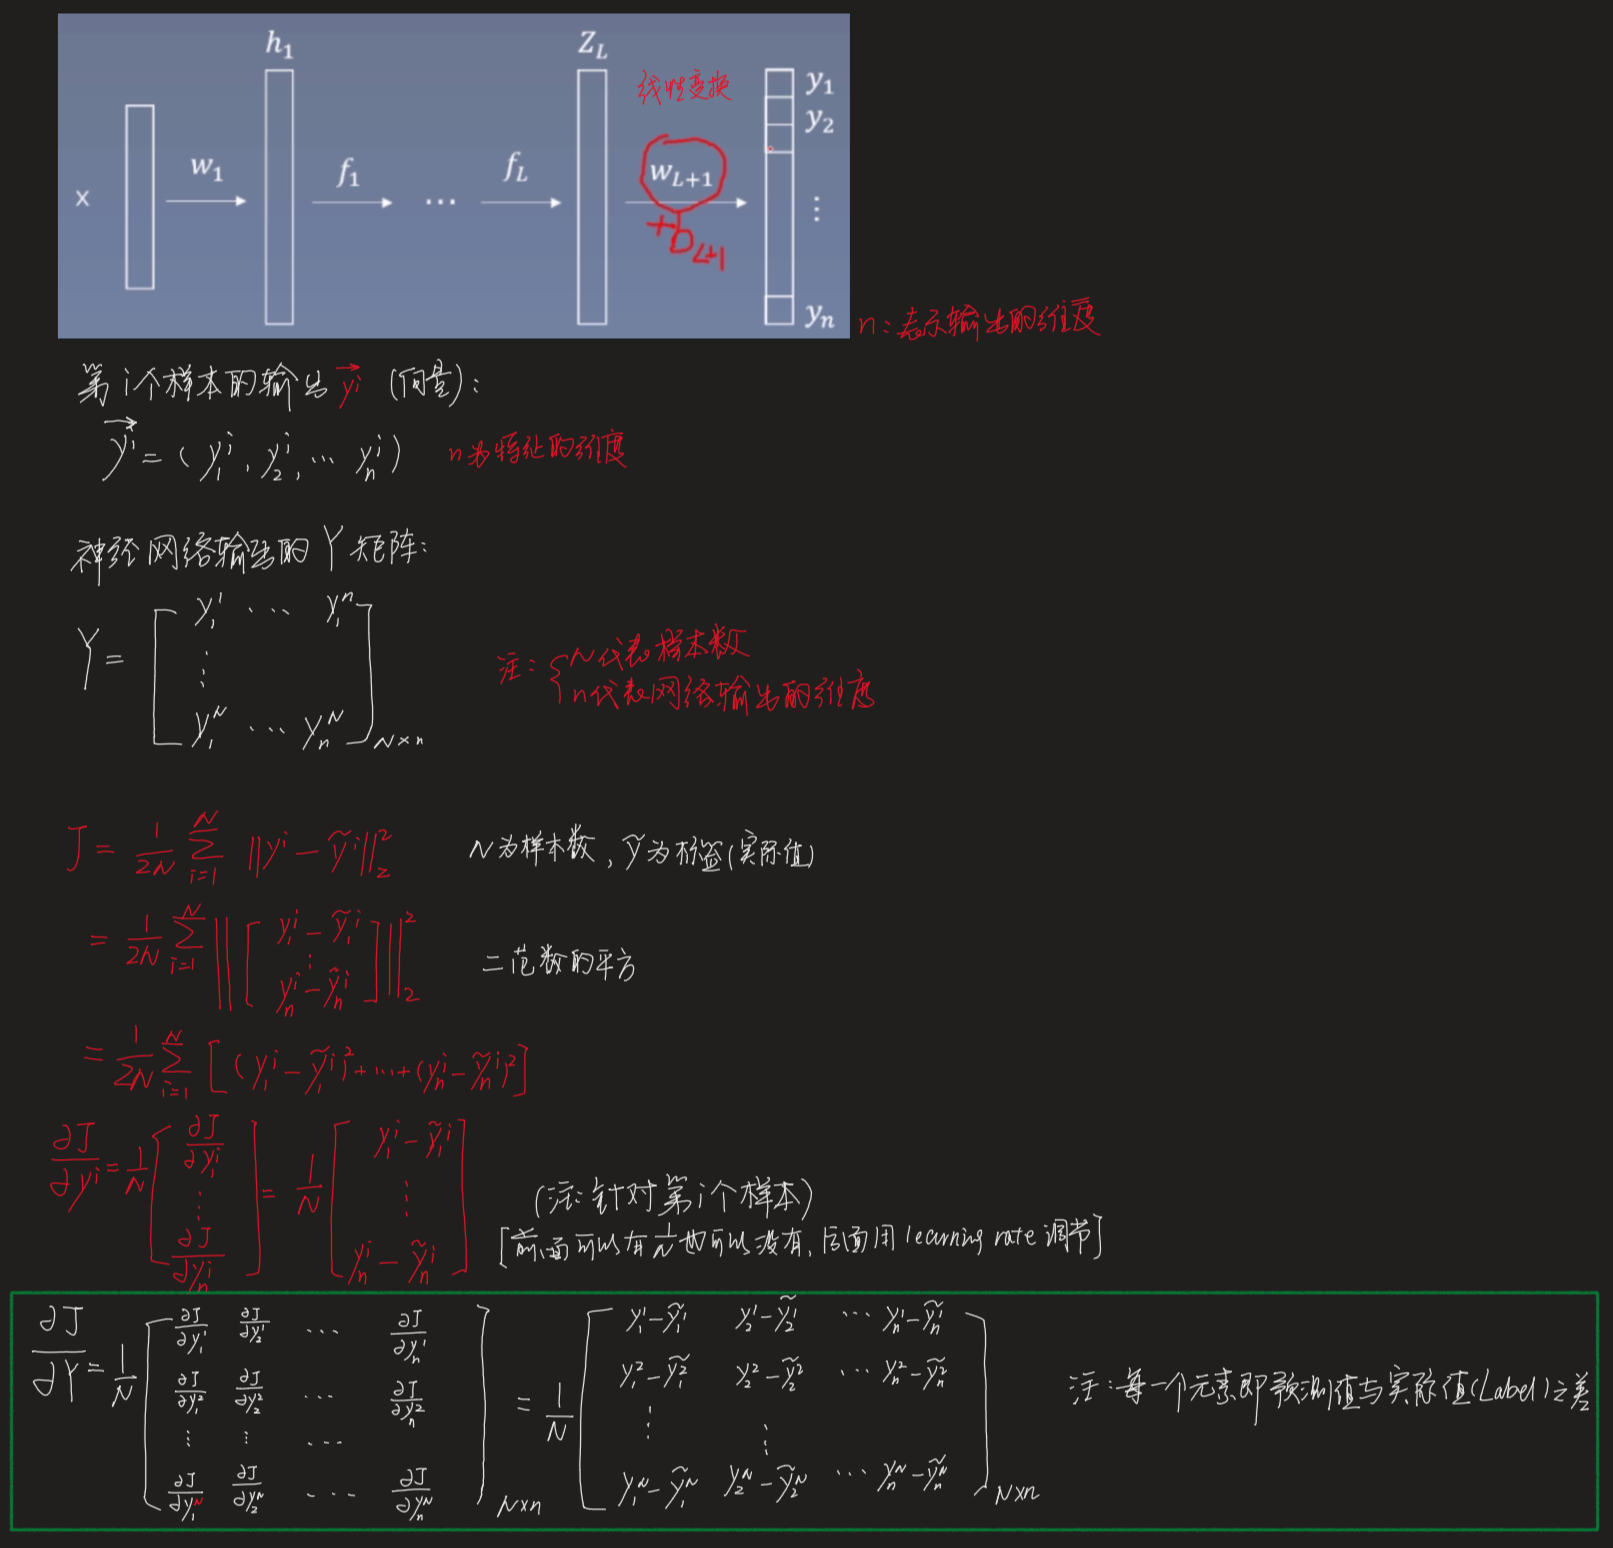 h₁ Z_L 线性变换 y₁
y₂
x w₁ f₁ … f_L w_{L+1} ⋮
+b_{L+1}
yₙ n:表示输出的维度
第i个样本的输出 y⃗ⁱ (向量):
y⃗ⁱ = (y₁ⁱ, y₂ⁱ, … yₙⁱ) n为特征的维度
神经网络输出的Y矩阵:
Y = [ y₁¹ … y₁ⁿ
⋮
y₁ᴺ … yₙᴺ ] N×n
注: { N代表样本数
n代表网络输出的维度
J = 1/2N Σ_{i=1}^{N} ||yⁱ - ỹⁱ||₂² N为样本数, ỹ为标签(实际值)
= 1/2N Σ_{i=1}^{N} || [ y₁ⁱ - ỹ₁ⁱ ⋮ yₙⁱ - ỹₙⁱ ] ||₂² 二范数的平方
= 1/2N Σ_{i=1}^{N} [ (y₁ⁱ - ỹ₁ⁱ)² + … + (yₙⁱ - ỹₙⁱ)² ]
∂J/∂yⁱ = 1/N [ ∂J/∂y₁ⁱ ⋮ ∂J/∂yₙⁱ ] = 1/N [ y₁ⁱ - ỹ₁ⁱ ⋮ yₙⁱ - ỹₙⁱ ]
(注: 针对第i个样本)
[前面可以有1/N也可以没有, 后面用 learning rate 调节]
∂J/∂Y = 1/N [ ∂J/∂y₁¹ ∂J/∂y₂¹ … ∂J/∂yₙ¹
∂J/∂y₁² ∂J/∂y₂² … ∂J/∂yₙ²
⋮ ⋮ …
∂J/∂y₁ᴺ ∂J/∂y₂ᴺ … ∂J/∂yₙᴺ ] N×n
= 1/N [ y₁¹ - ỹ₁¹ y₂¹ - ỹ₂¹ … yₙ¹ - ỹₙ¹
y₁² - ỹ₁² y₂² - ỹ₂² … yₙ² - ỹₙ²
⋮ ⋮
y₁ᴺ - ỹ₁ᴺ y₂ᴺ - ỹ₂ᴺ … yₙᴺ - ỹₙᴺ ] N×n
注: 每一个元素即预测值与实际值(Label)之差